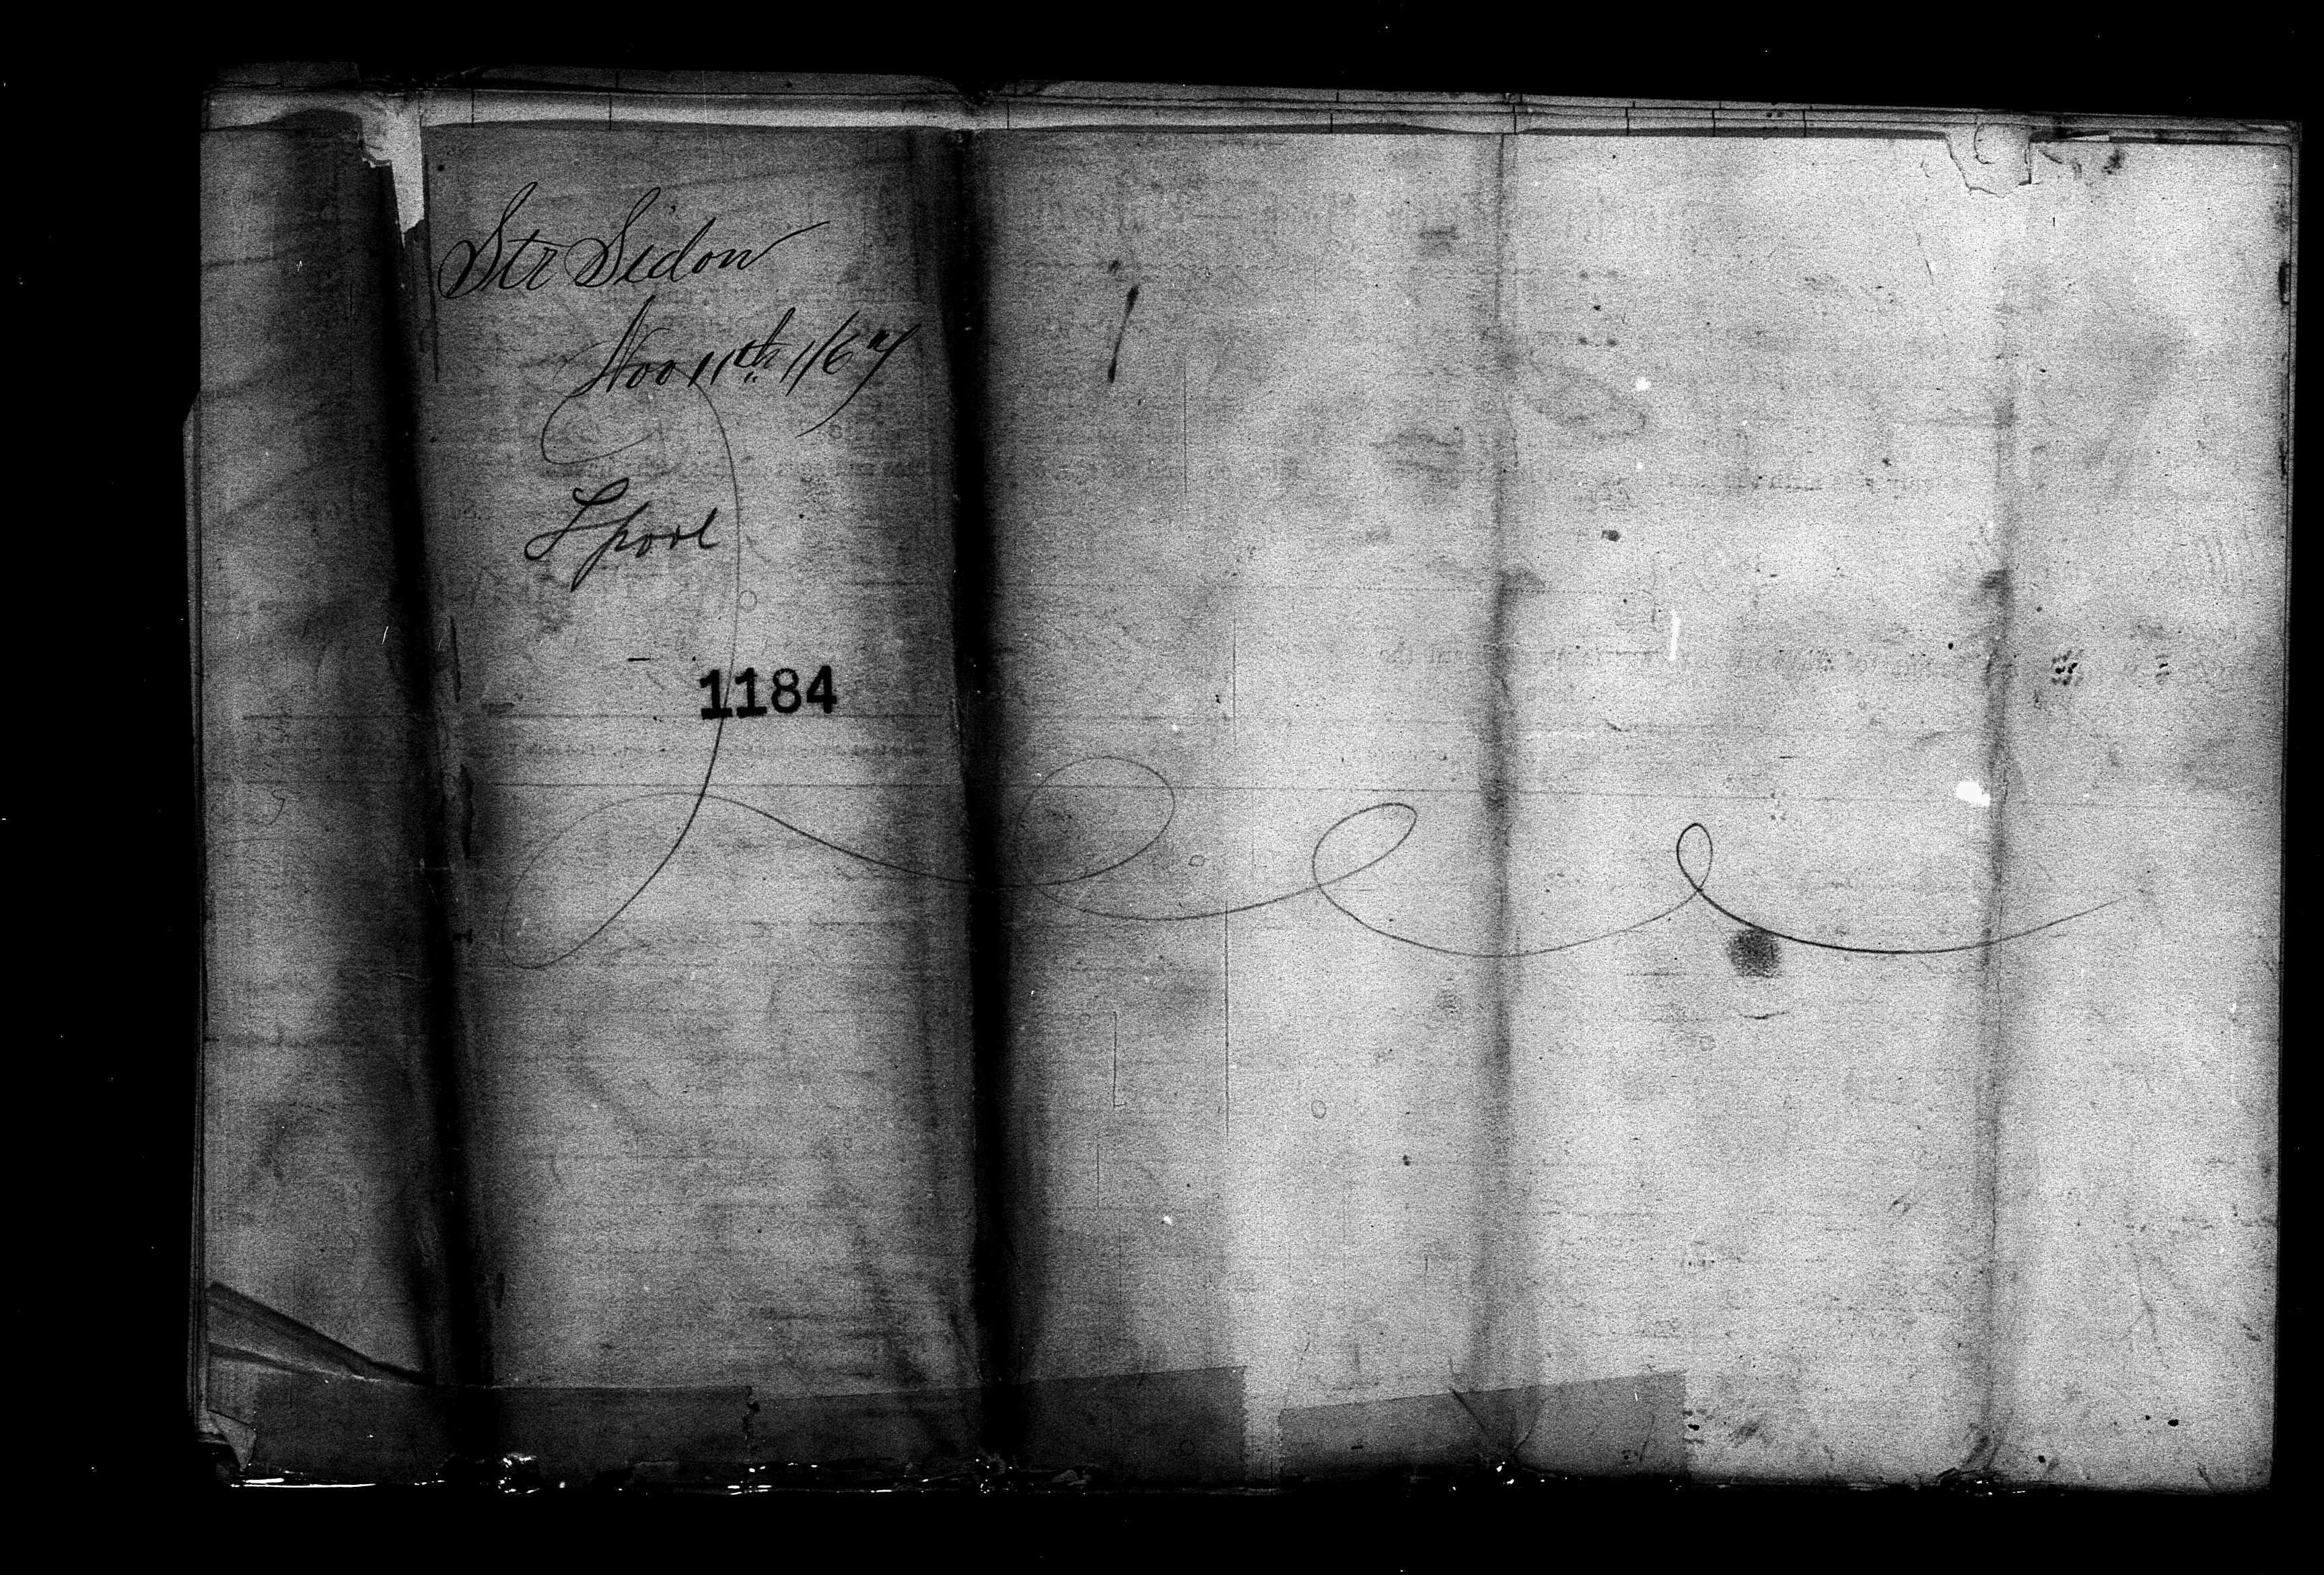 Str Sidon
Nov 11th 1/67
Lpool
1184